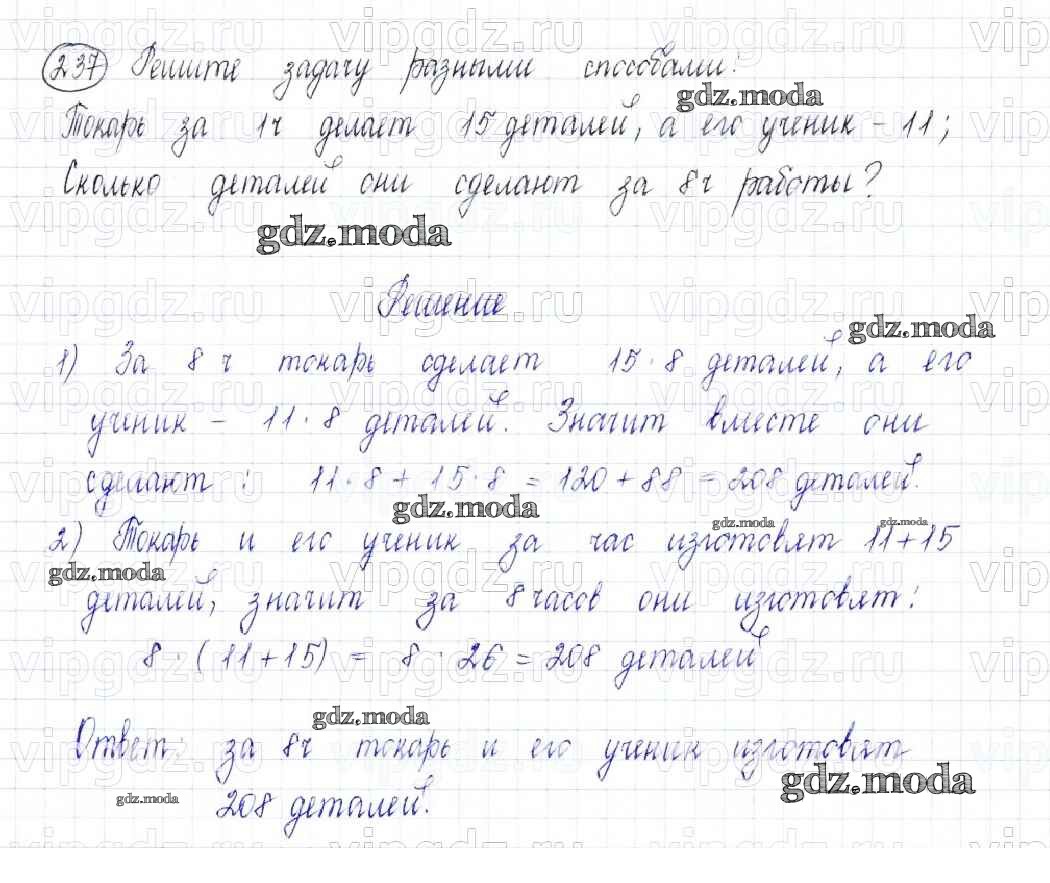 237 Решите задачу разными способами:
gdz.moda
Токарь за 1ч делает 15 деталей, а его ученик – 11;
Сколько деталей они сделают за 8ч работы?
gdz.moda
Решение
gdz.moda
1) За 8 ч токарь сделает 15·8 деталей, а его
ученик – 11·8 деталей. Значит вместе они
сделают: 11·8 + 15·8 = 120 + 88 = 208 деталей.
gdz.moda
gdz.moda gdz.moda
2) Токарь и его ученик за час изготовят 11+15
gdz.moda
деталей, значит за 8 часов они изготовят:
8 · (11+15) = 8 · 26 = 208 деталей
gdz.moda
Ответ: за 8ч токарь и его ученик изготовят
gdz.moda
gdz.moda
208 деталей.
vipgdz.ru